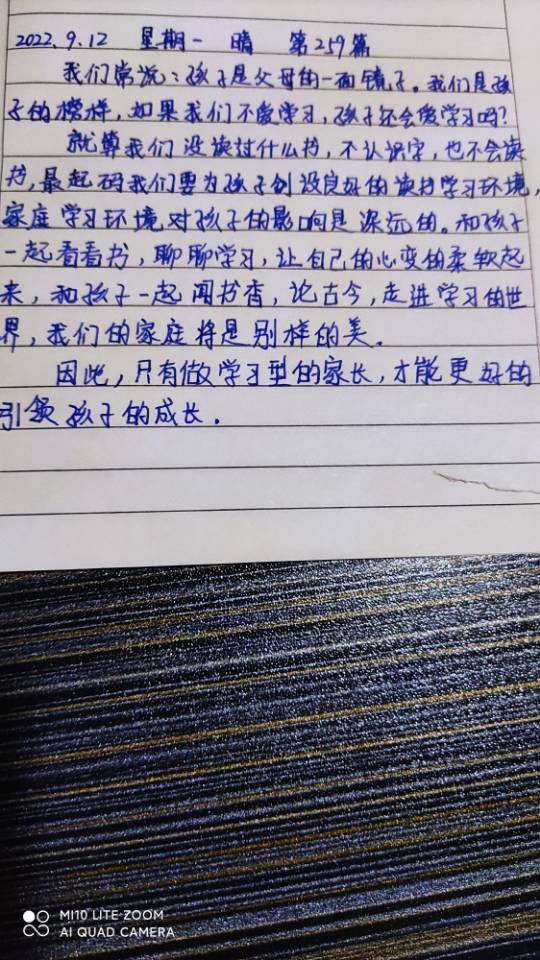 2022.9.12 星期一 晴 第259篇
我们常说：孩子是父母的一面镜子。我们是孩
子的榜样，如果我们不爱学习，孩子还会爱学习吗？
就算我们没读过什么书，不认识字，也不会读
书，最起码我们要为孩子创设良好的读书学习环境，
家庭学习环境对孩子的影响是深远的。和孩子
一起看看书，聊聊学习，让自己的心变的柔软起
来，和孩子一起闻书香，论古今，走进学习的世
界，我们的家庭将是别样的美。
因此，只有做学习型的家长，才能更好的
引领孩子的成长．
MI10 LITE ZOOM
AI QUAD CAMERA